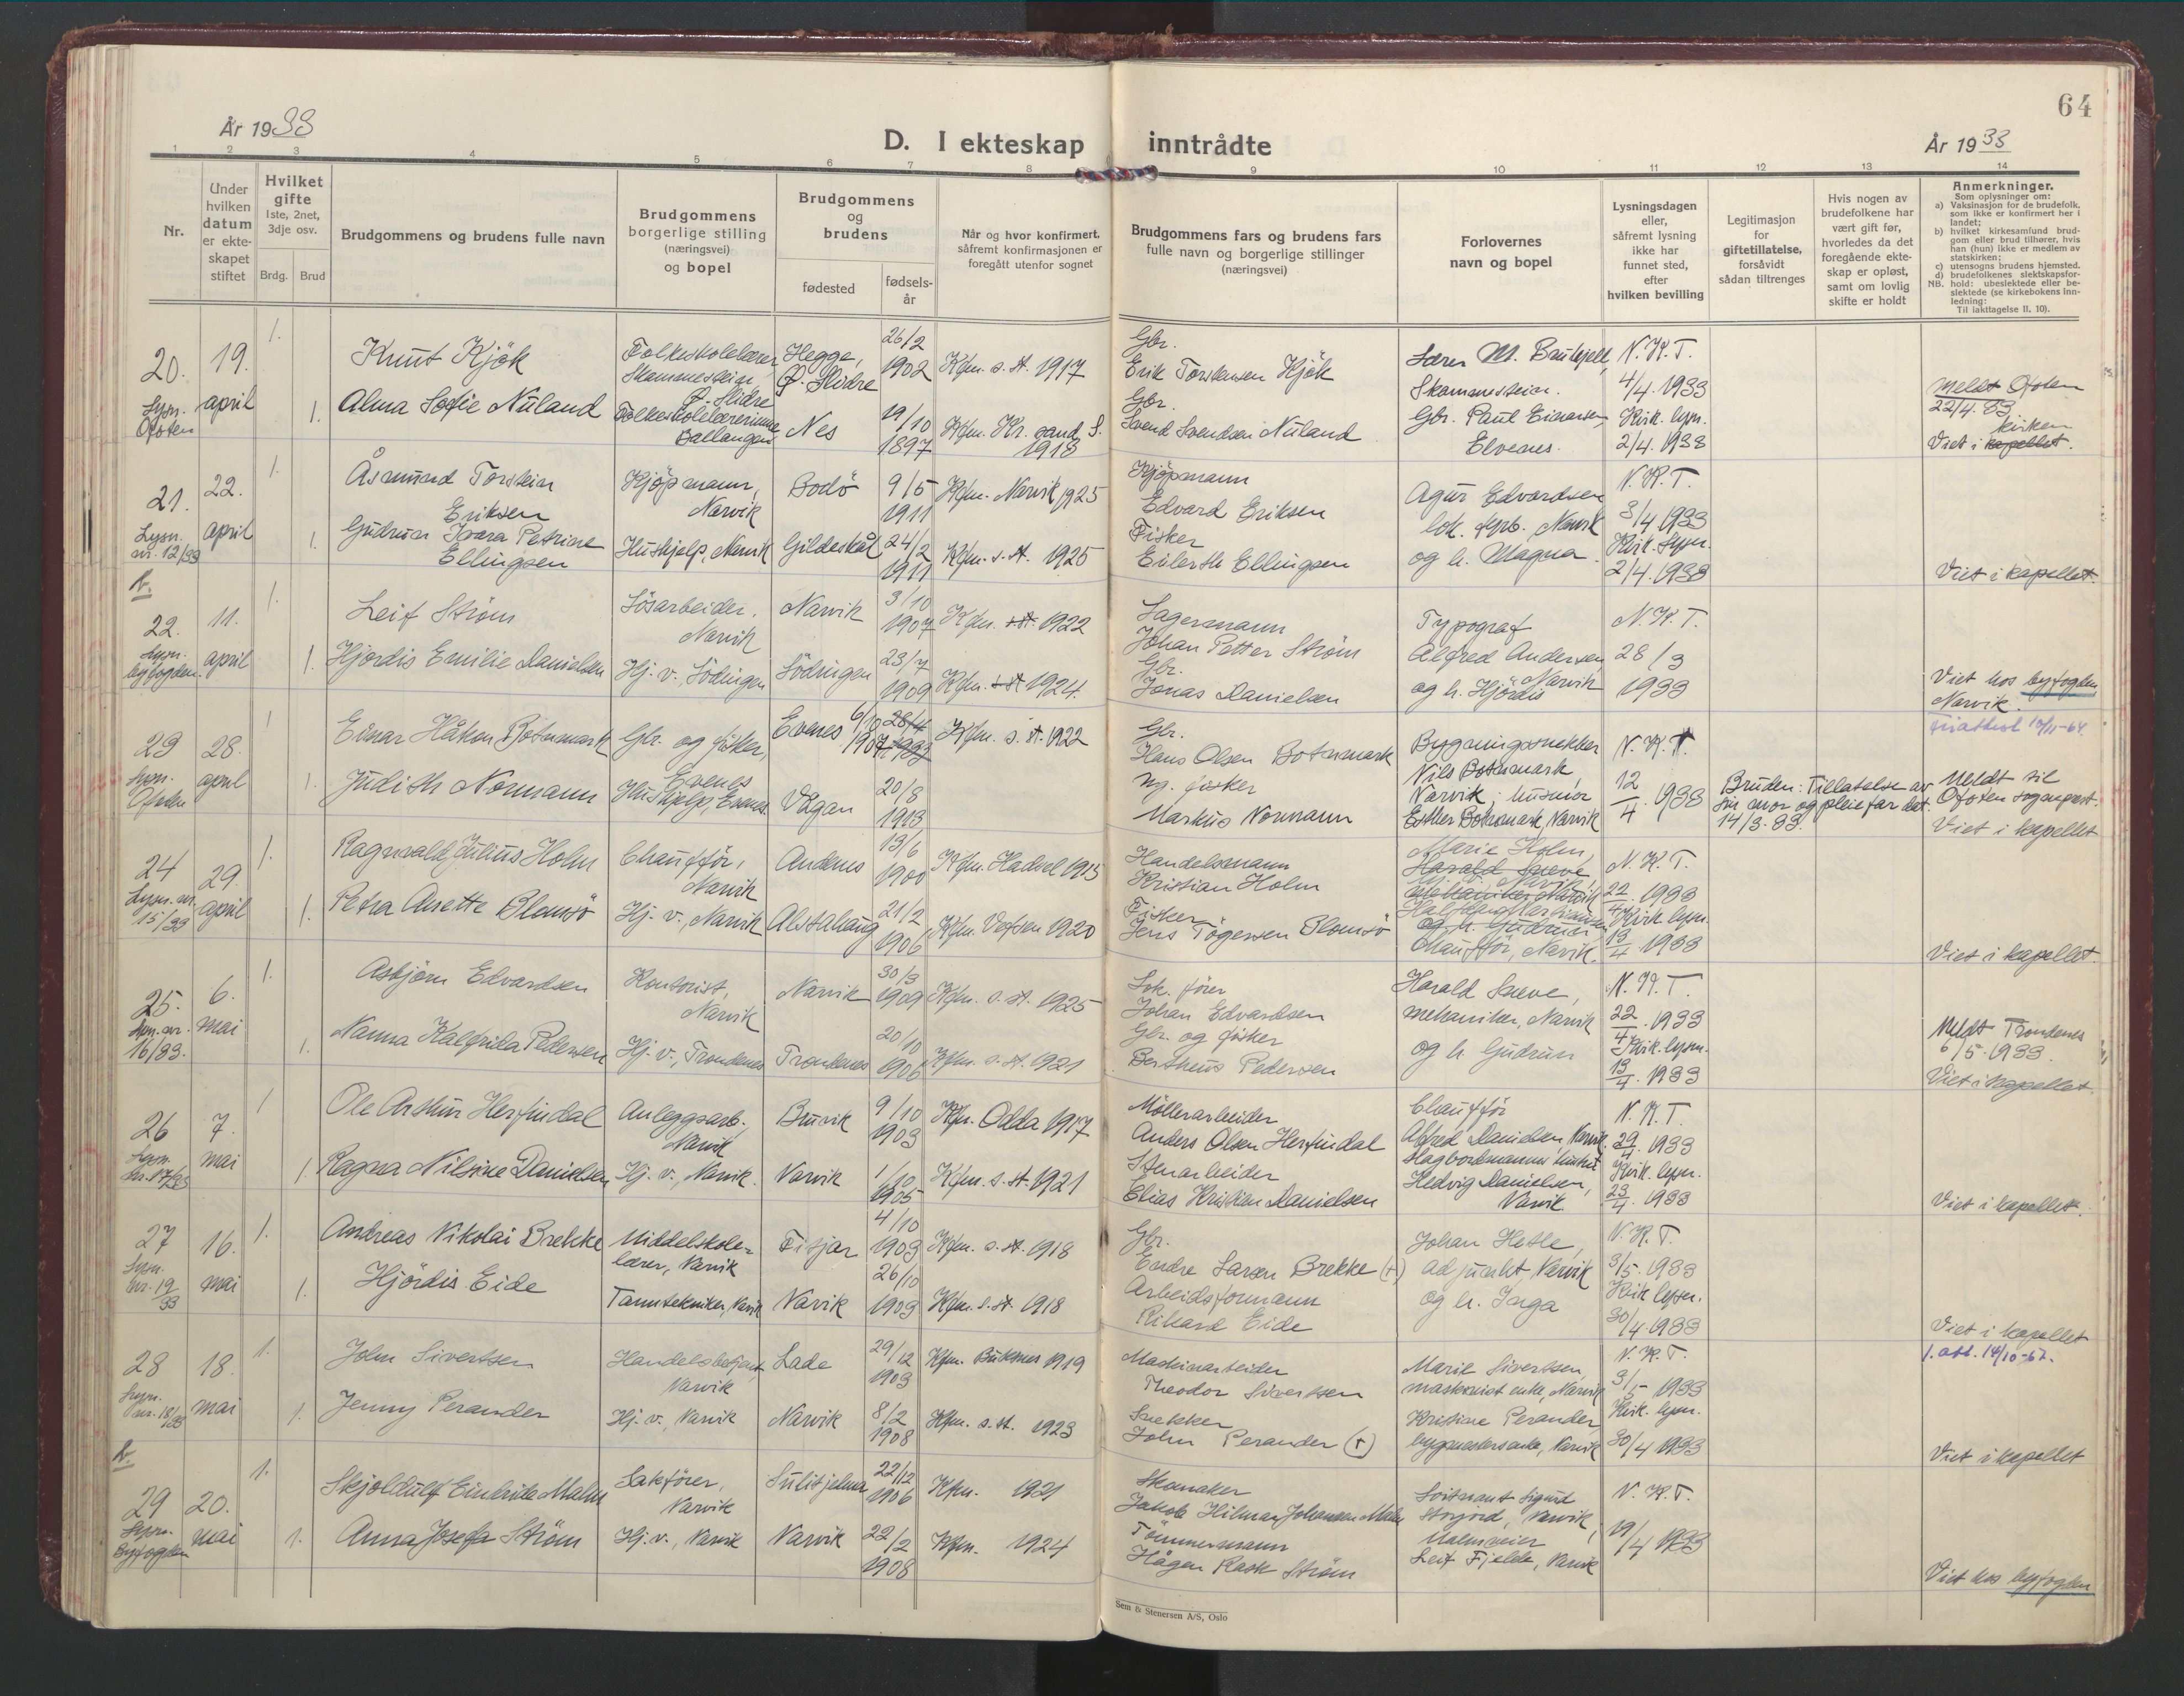 64
År 1933
D. I ekteskap inntrådte
År 1933
1 2 3 4 5 6 7 8 9 10 11 12 13 14
Nr.
Under hvilken datum er ekteskapet stiftet
Hvilket gifte
1ste, 2net, 3dje osv.
Brdg. Brud
Brudgommens og brudens fulle navn
Brudgommens borgerlige stilling (næringsvei) og bopel
Brudgommens og brudens
fødested
fødselsår
Når og hvor konfirmert, såfremt konfirmasjonen er foregått utenfor sognet
Brudgommens fars og brudens fars fulle navn og borgerlige stillinger (næringsvei)
Forlovernes navn og bopel
Lysningsdagen eller, såfremt lysning ikke har funnet sted, efter hvilken bevilling
Legitimasjon for giftetillatelse, forsåvidt sådan tiltrenges
Hvis nogen av brudefolkene har vært gift før, hvorledes da det foregående ekteskap er opløst, samt om lovlig skifte er holdt
Anmerkninger.
Som oplysninger om:
a) Vaksinasjon for de brudefolk, som ikke er konfirmert her i landet;
b) hvilket kirkesamfund brudgom eller brud tilhører, hvis han (hun) ikke er medlem av statskirken;
c) utensogns brudens hjemsted.
d) brudefolkenes slektskapsforhold: ubeslektede eller beslektede (se kirkebokens innledning:
NB. Til iakttagelse II. 10).
20. 19. april 1. Knut Kjök Folkeskolelærer Skammestein, Ø. Slidre Hegge, Ø. Slidre 26/2 1902 Kfm. s. st. 1917 Gbr. Erik Torstensen Kjök Lærer M. Skammestein. N.K.T. 4/4. 1933
Lysn. Ofoten 1. Alma Sofie Nuland Folkeskolelærerinne Ballangen Nes 19/10 1897 Kfm. Kr.sand S. 1913 Gbr. Svend Svendsen Nuland Gbr. Paul Einarsen, Elvenes. Kvik. lysn. 2/4. 1933 Meldt Ofoten 22/4. 33. Viet i kapellet. kirken
21. 22. april 1. Åsmund Torstein Eriksen Kjöpmann, Narvik Bodö 9/5 1911 Kfm. Narvik 1925 Kjöpmann Edvard Eriksen Agur Edvardsen lok. fyrb. Narvik N.K.T. 3/4 1933
Lysn. nr. 12/33 1. Gudrun Ivara Petrine Ellingsen Hushjelp, Narvik Gildeskål 24/2 1911 Kfm. s. st. 1925 Fisker Eilerth Ellingsen og h. Magna Kvik. Lysn. 2/4. 1933 Viet i kapellet.
22. 11. april 1. Leif Ström Lösarbeider, Narvik Narvik 3/10 1907 Kfm. s. st. 1922 Lagermann Johan Petter Ström Typograf Alfred Andersen Narvik N.K.T. 28/3 1933
Lysn. byfogden 1. Hjordis Emilie Danielsen Hj. v., Lödingen Lödingen 23/7 1909 Kfm. s. st. 1924. Gbr. Jonas Danielsen og h. Hjördis Viet hos byfogden Narvik.
23 28. april 1 Einar Håkon Botnmark Gbr. og fisker, Evenes Evenes 6/10 1907 28/4 1933 Kfm. s. st. 1922 Gbr. Hans Olsen Botnmark Bygningssnekker Nils Botnmark, Narvik; husmor N.K.T. 12/4. 1933 10/11-64.
Lysn. Ofoten 1. Judith Normann Hushjelp, Evenes Vågan 20/8 1913 Ng. fisker Markus Normann Esther Botnmark, Narvik Bruden: Tillatelse av sin mor og pleiefar dat. 14/3. 33. Meldt til Ofoten sogneprest. Viet i kapellet
24 29. april 1. Ragnvald Julius Holm Chauffør, Narvik Andenes 13/6 1900 Kfm. Hadsel 1915 Handelsmann Kristian Holm Marie Holm, Harald Sneve mekaniker, Narvik og h. Gudrun N.K.T. 22/4. 1933
Lysn. nr. 15/33 1. Petra Anette Blomsö Hj. v., Narvik Alstahaug 21/2 1906 Kfm. Vefsen 1920 Fisker Jens Tögersen Blomsö Chauffør, Narvik. Kvik. lysn. 13/4. 1933 Viet i kapellet.
25. 6. mai 1. Asbjörn Edvardsen Kontorist, Narvik Narvik 30/3 1909 Kfm. s. st. 1925 Lok. förer Johan Edvardsen Harald Sneve, mekaniker, Narvik N.K.T. 22/4. 1933
Lysn. nr. 16/33. 1. Nanna Kalfrida Pedersen Hj. v., Trondenes Trondenes 20/10 1906 Kfm. s. st. 1921 Gbr. og fisker Bertheus Pedersen og h. Gudrun Kvik. lysn. 13/4. 1933 Meldt Trondenes 6/5. 1933. Viet i kapellet.
26 7. mai 1 Ole Arthur Herfindal Anleggsarb., Narvik Bruvik 9/10 1903 Kfm. Odda 1917 Möllerarbeider Anders Olsen Herfindal Chauffør Alfred Danielsen, Narvik N.K.T. 29/4. 1933
Lysn. nr. 17/33 1 Ragna Nilsine Danielsen Hj. v., Narvik. Narvik 1/10 1905 Kfm. s. st. 1921 Stenarbeider Elias Kristian Danielsen Hedvig Danielsen, Narvik Kvik. lysn. 23/4. 1933 Viet i kapellet.
27 16. mai 1. Andreas Nikolai Brekke Middelskolelærer, Narvik Fitjar 4/10 1903 Kfm. s. st. 1918 Gbr. Endre Larsen Brekke (†) Johan Hetle, adjunkt, Narvik N.K.T. 3/5. 1933
Lysn. nr. 19/33 1. Hjördis Eide Tanntekniker, Narvik Narvik 26/10 1903 Kfm. s. st. 1918 Arbeidsformann Rikard Eide og h. Inga Kvik lysn. 30/4 1933 Viet i kapellet
28 18. mai 1. John Sivertsen Handelsbetjent, Narvik Lade 29/12 1903 Kfm. Buksnes 1919 Maskinarbeider Theodor Sivertsen Marie Sivertsen, maskinist enke, Narvik N.K.T. 3/5 1933 1. att. 14/10-67.
Lysn. nr. 18/33 1. Jenny Perander Hj. v., Narvik Narvik 8/2 1908 Kfm. s. st. 1923 Snekker John Perander (†) Kristine Perander, bygmestersenke, Narvik Kvik. lysn. 30/4 1933 Viet i kapellet
29 20. mai 1. Skjoldulf Eindride Malm Sakförer, Narvik Sulitjelma 22/12 1906 Kfm. 1921 Skomaker Jakob Hilmar Johansen Malm Loitnant Sigurd Storjord, Narvik N.K.T. 19/4 1933
Lysn. Byfogden 1. Anna Josefa Ström Hj. v., Narvik Narvik 22/2 1908 Kfm. 1924 Tömmermann Hågen Rask Ström Malmveier Leif Fjelde, Narvik Viet hos byfogden
Sem & Stenersen A/S, Oslo